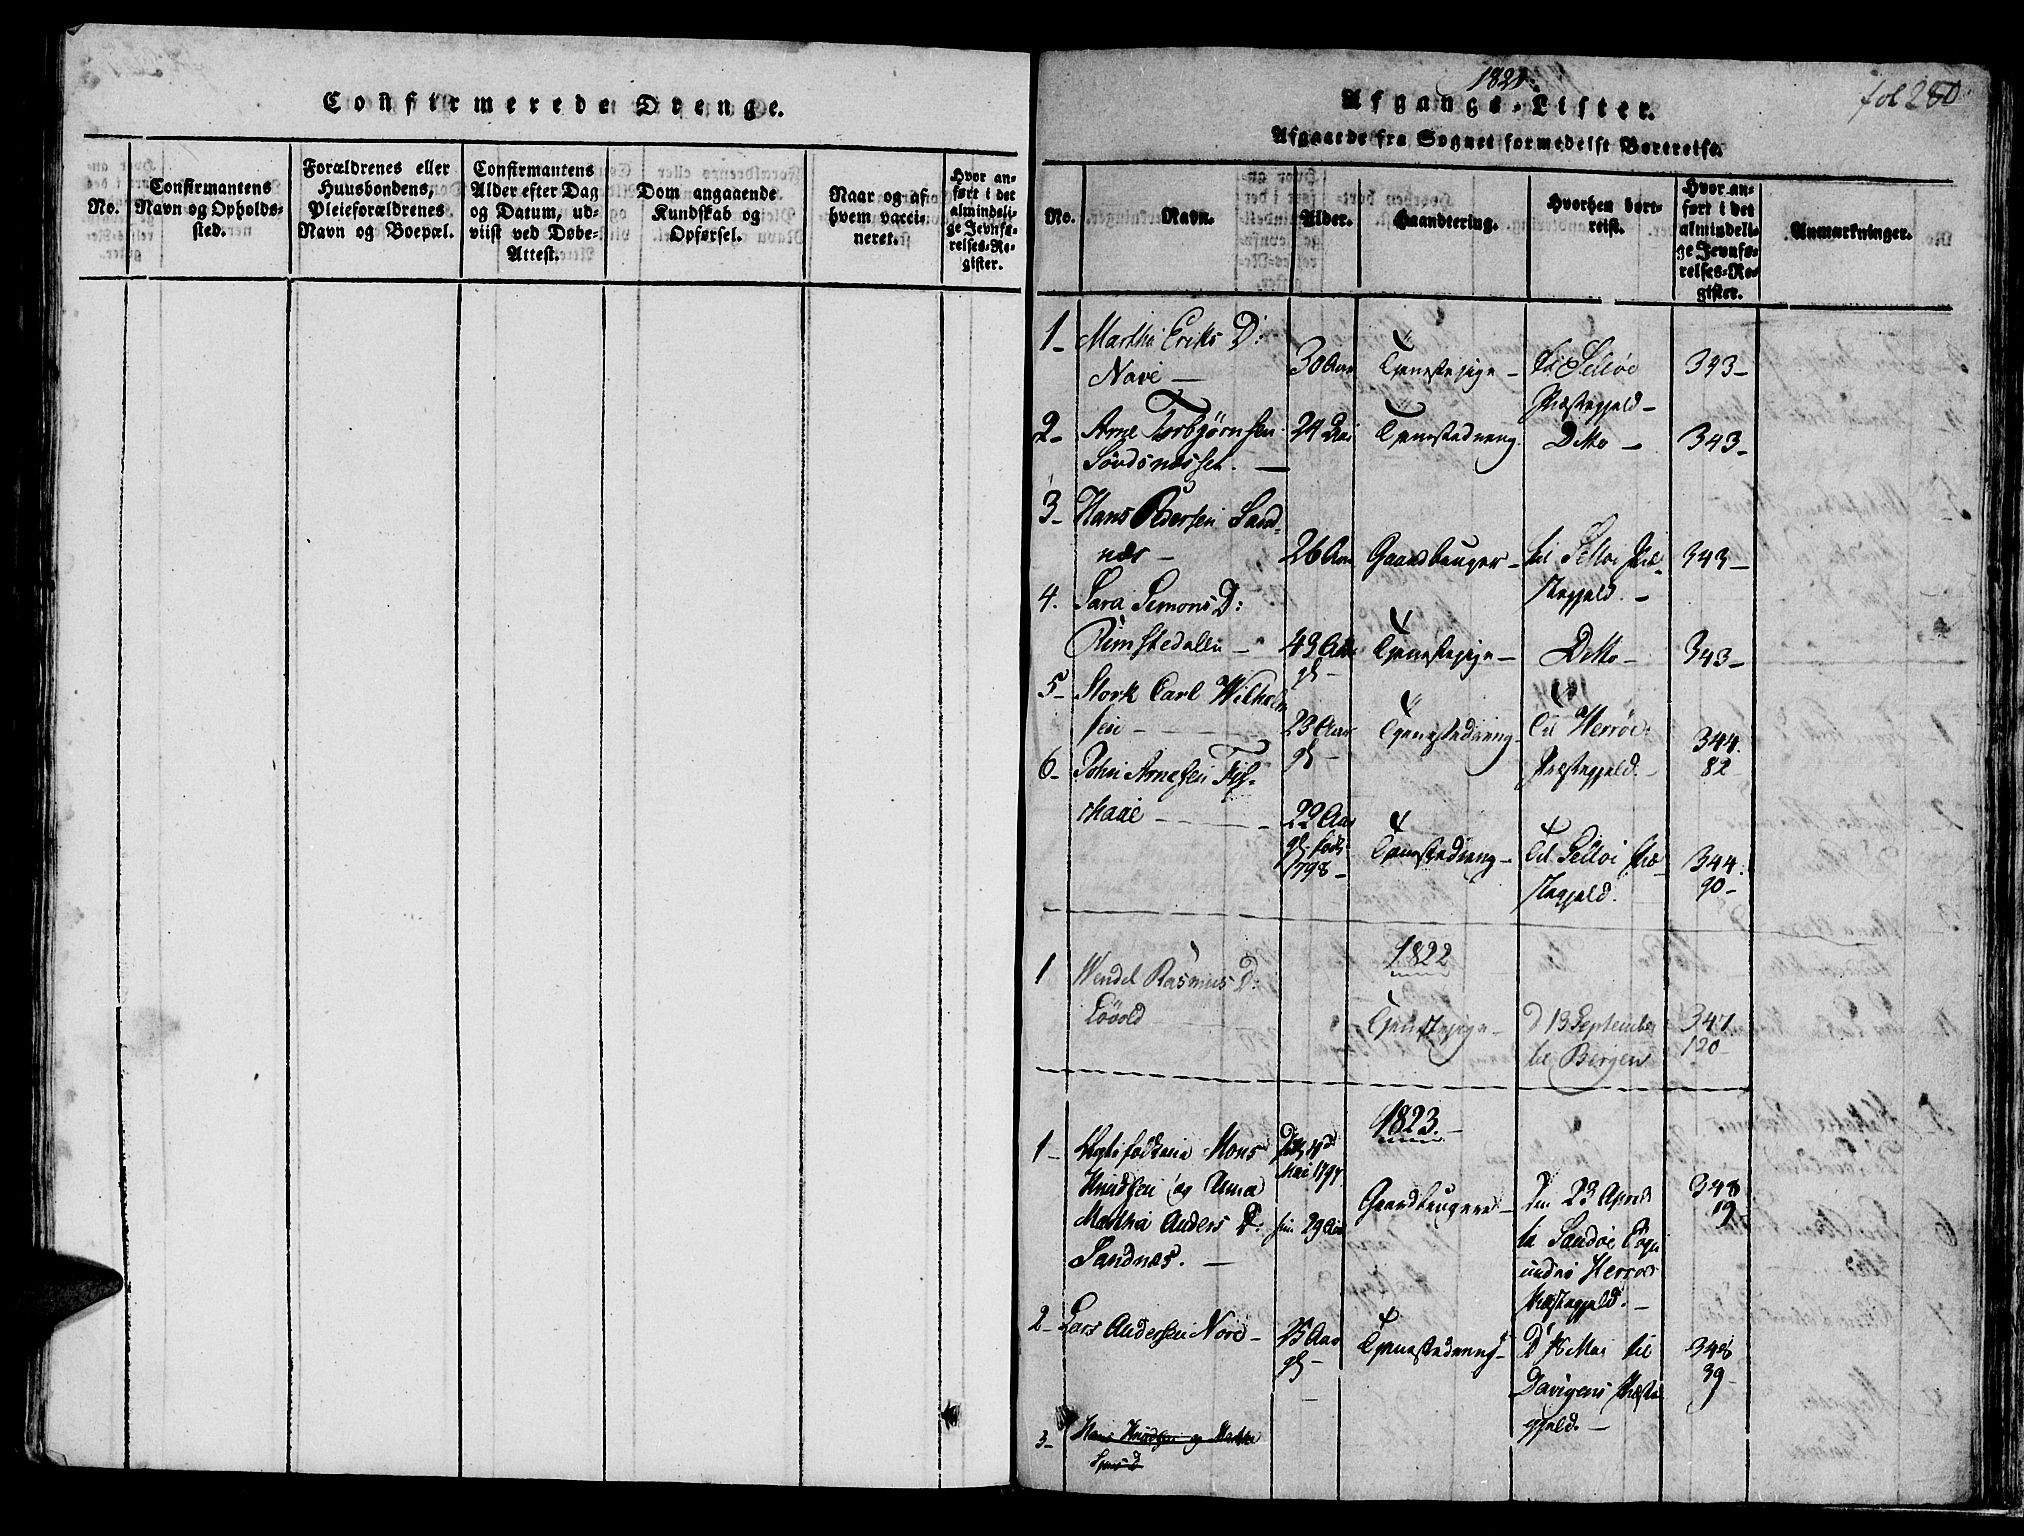 Confirmerede Drenge.
No.
Confirmantens
Navn og Opholds-
sted.
Forældrenes eller
Huusbondens,
Pleieforældrenes
Navn og Boepæl.
Confirmantens
Alder efter Dag
og Datum, ud-
viist ved Døbe-
Attest.
Dom angaaende
Kundskab og
Opførsel.
Naar og af
hvem vacci-
neret.
Hvor an-
ført i det
almindeli-
ge Jevnfø-
relses-Re-
gister.
1821.
fol 280
Afgangs-Lister.
Afgaaede fra Sognet formedelst Bortreise.
No.
Navn.
Alder.
Haandtering.
Hvorhen bort-
reist.
Hvor an-
ført i det
almindeli-
ge Jevnfø-
relses-Re-
gister.
Anmærkninger.
1- Martha Eriks D:
Nave — 30 Aar Tjenestepige - til Selløe 393-
Præstegjeld-
2- Arne Torbjørnsen 24 Tjenestedreng Ditto - 343-
3- Hans Pedersen Sand-
næs - 26 Aar Gaardbruger - til Selløe Præ- 343-
4. Sara Simons D: stegjeld. -
49 Aar Tjenestepige - Ditto - 343-
gl -
5- Stork Carl Wilhelm
sen - 23 Aar Tjenestedreng til Herrøe 344.
gl - Præstegjeld. - 82-
6- John Arnesen
22 Aar Tjenestedreng - til Selløe Præ- 344.
gl. født stegjeld. 90-
1798-
1822
1 Wendel Rasmus D:
Løvold Tjenestepige - D 13 September 347
til Bergen 120-
1823.-
1- Mons
Knudsen og Anna Mai 1797 Den 23 April 348
Martha Anders D: 29 Aar Gaardbrugere - til Sandøe Sogn 19-
Sandnæs. - under Herrøe
Præstegjeld. -
2- Lars Andersen Nore - 25 Aar Tjenestedreng - D 18 Mai til 348
gl - Davigens Præste 39-
gjeld. -
3- Hans Knudsen og Martha